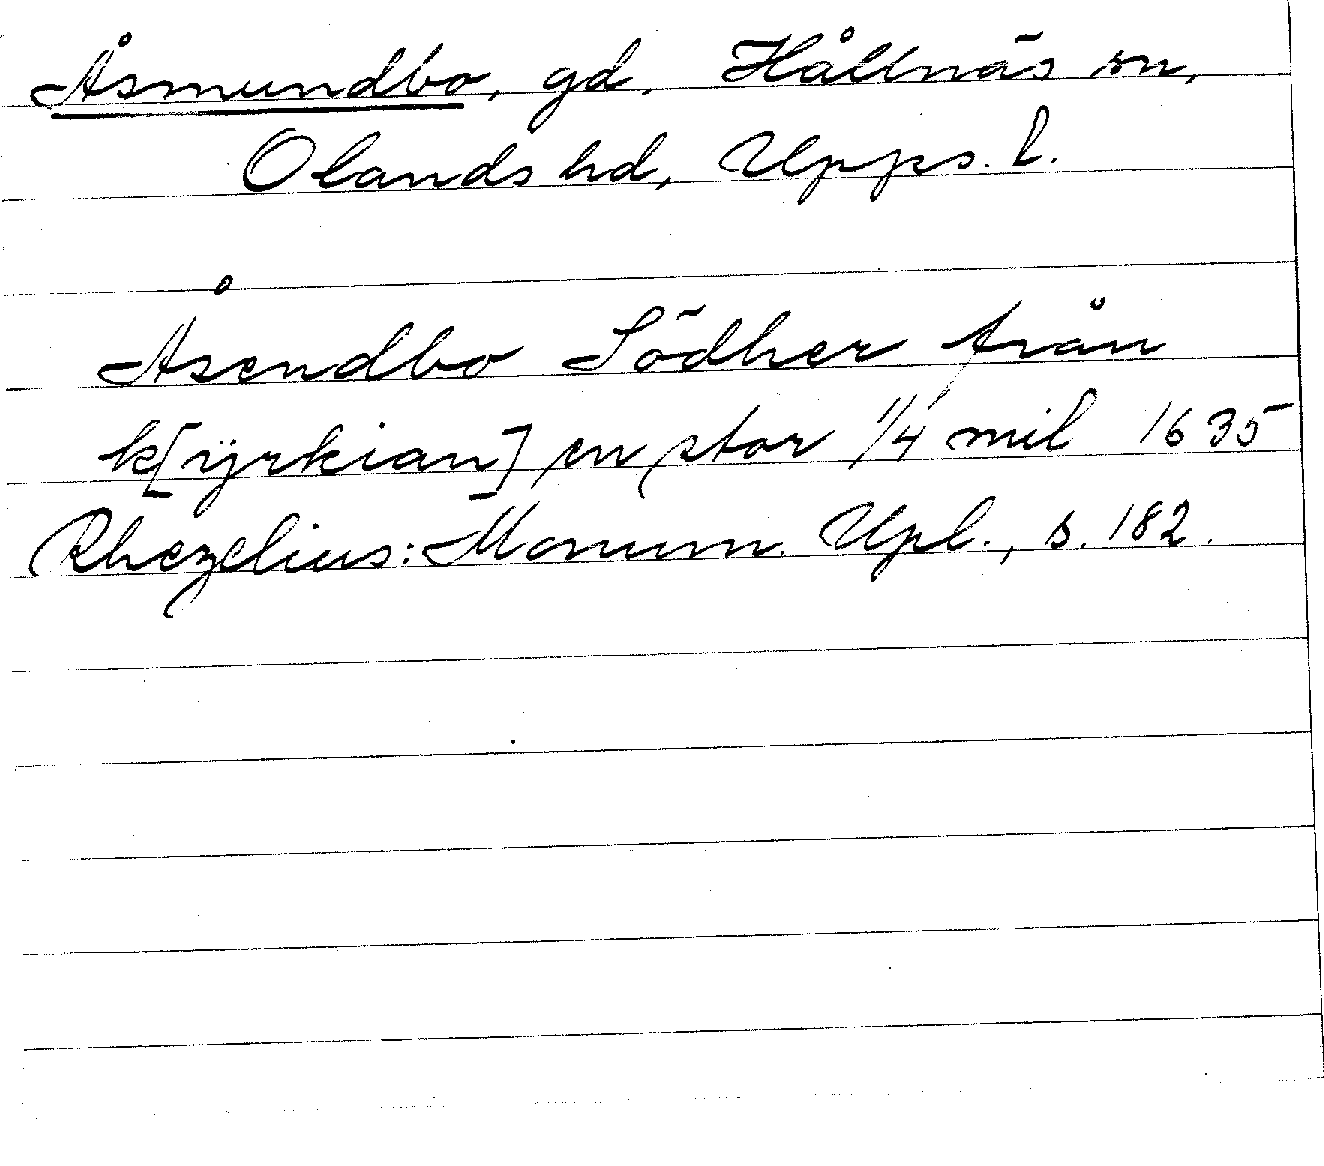 Åsmundbo, gd. Hållnäs sn,
Olands hd, Upps. l.
Åsendbo Södher från
k[ÿrkian] en stor 1/4 mil 1635
Rhezelius: Monum. Upl., s. 182.